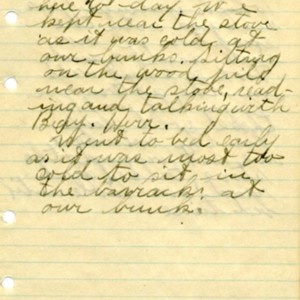 to day for I
kept near the stove
as it was cold at
our bunks. Sitting
on the wood pile
near the stove, read-
ing and talking with
Burr.
Went to bed early
as it was most too
cold to sit in
the barracks at
our bunk.